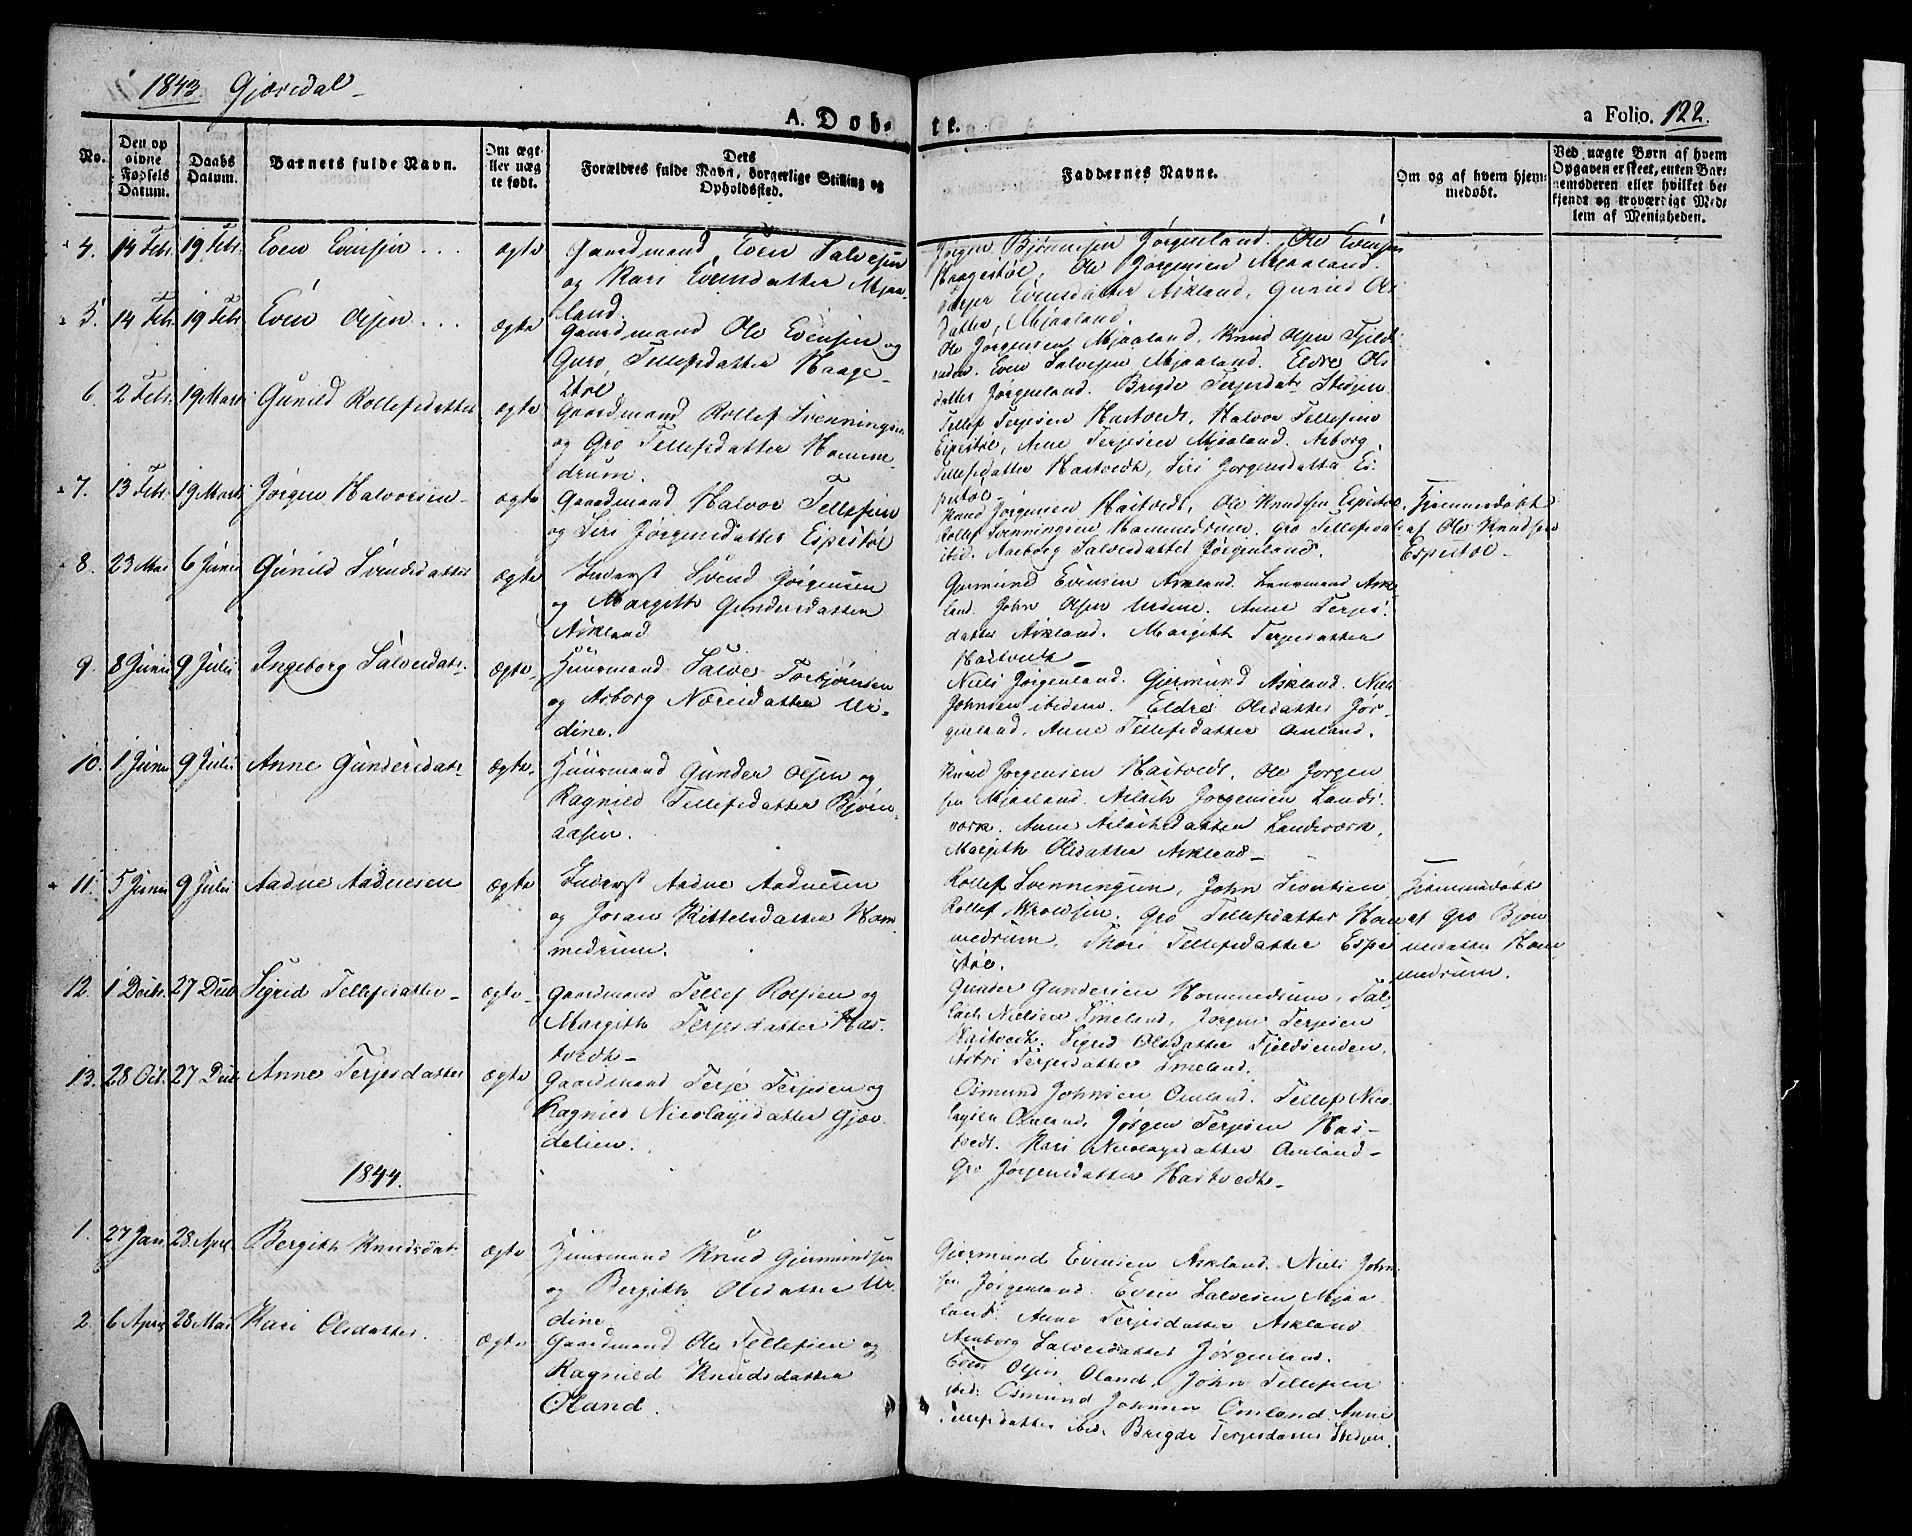 1843 Gjøvdal
A. Døb- te.
a Folio. 122.
No.
Den op
givne
Fødsels
Datum.
Daabs
Datum.
Barnets fulde Navn.
Om ægt
ller uæg
te født.
Dets
Forældres fulde Navn, borgerlige Stilling og
Opholdssted.
Faddernes Navne.
Om og af hvem hjem-
medøbt.
Ved uægte Børn af hvem
Opgaven er skeet, enten Bar-
nemoderen eller hvilket be-
kjendt og troværdigt Med-
lem af Menigheden.
4. 14 Febr. 19 Febr. Even Evensen ægte
Gaardmand Even Salvesen
og Kari Evensdatter Mjaa-
land.
Jørgen Bjørnsen Jørgenland. Ole Evensen
Haagestøl, Ole Jørgensen Mjaaland.
Evensdatter Askland, Gunild Ols
datter, Mjaaland.
5. 14 Feb. 19 Febr. Even Olsen ægte
Gaardmand Ole Evensen og
Guro Tellefsdatter Haage-
støl
Ole Jørgensen Mjaaland. Knud Olsen Fjeld-
enden. Even Salvesen Mjaaland. Eldre Ols
datter Jørgenland. Brigde Terjesdatr Stedjen
6. 2 Febr. 19 Marts Gunild Rollefsdatter ægte
Gaardmand Rollef Svenningsen
og Gro Tellefsdatter Homme-
drum.
Tellef Terjesen Hastvedt, Halvor Tellefsen
Espestøl, Arne Terjesen Mjaaland. Asborg
Tellefsdatter Hastvedt, Siri Jørgensdatter Es-
pestøl
7. 13 Febr. 19 Marts Jørgen Halvorsen ægte
Gaardmand Halvor Tellefsen
og Siri Jørgensdatter Espestøl
Knud Jørgensen Hastvedt, Ole Knudsen Espestøl,
Rollef Svenningsen Hommedrum. Gro Tellefsdatr
ibid. Aasborg Salvesdatter Jørgenland.
Hjemmedøbt
af Ole Knudsen
Espestøl
8. 23 Mai 6 Junii Gunild Svendsdatter ægte
Inderst Svend Jørgensen
og Margith Gundersdatter
Askland
Gjermund Evensen Askland. Lensmand Ask-
land. John Olsen Urdine. Anne Terjes-
datter Askland. Margith Terjesdatter
Hastvedt
9. 8 Junii 9 Julii Ingeborg Salvesdatr ægte
Huusmand Salve Torbjørnsen
og Asborg Næresdatter Ur-
dine.
Niels Jørgenland. Gjermund Askland. Niels
Johnsen ibidem. Eldre Olsdatter Jør-
genland, Anne Tellefsdatter Omland.
10. 1 Junii 9 Julii Anne Gundersdatr ægte
Huusmand Gunder Olsen og
Ragnild Tellefsdatter Bjørn-
aasen.
Knud Jørgensen Hastvedt, Ole Jørgen
sen Mjaaland. Aslach Jørgensen Lands-
værk. Anne Aslachsdatter Landsværk,
Margith Olsdatter Askland
11. 5 Junii 9 Julii Aadne Aadnesen ægte
Inderst Aadne Aadnesen
og Joran Kittelsdatter Hom-
medrum.
Rollef Svenningsen, John Sivertsen
Rollef Aroldsen. Gro Tellefsdatter Hom
medrum. Thore Tellefsdatter Espe
støl.
Hjemmedøbt
af Gro Bjørn
nesdatter Hom
medrum.
12. 1 Decbr. 27 Decb Sigrid Tellefsdatter ægte
Gaardmand Tellef Rolfsen og
Margith Terjesdatter Has-
tvedt
Gunder Gundersen Hommedrum, Tal-
lach Nielsen Smeland, Jørgen Terjesen
Hastvedt. Sigrid Olsdatter Fjeldsenden.
Astri Terjesdatter Smeland.
13. 28 Oct. 27 Decb Anne Terjesdatter ægte
Gaardmand Terje Terjesen og
Ragnild Nicolaysdatter Gjøv-
delien.
Osmund Johnsen Omland. Tellef Nico-
laysen Omland, Jørgen Terjesen Has-
tvedt. Kari Nicolaysdatter Omland
Gro Jørgensdatter Hastvedt
1844.
1. 27 Jan. 28 Apr. Bergith Knudsdatr ægte
Huusmand Knud Gjermundsen
og Bergith Olsdatter Ur-
dine
Gjermund Evensen Askland. Niels John-
sen Jørgenland. Even Salvesen Mjaa-
land. Anne Terjesdatter Askland
Aasborg Salvesdatter Jørgenland.
2. 6 April 28 Mai Kari Olsdatter. ægte
Gaardmand Ole Tellefsen og
Ragnild Knudsdatter
Oland.
Even Olsen Oland, John Tellefsen
ibid: Osmund Johnsen Omland. Anne
Tellefsdatter ibid. Brigde Terjesdatter Stedjen.